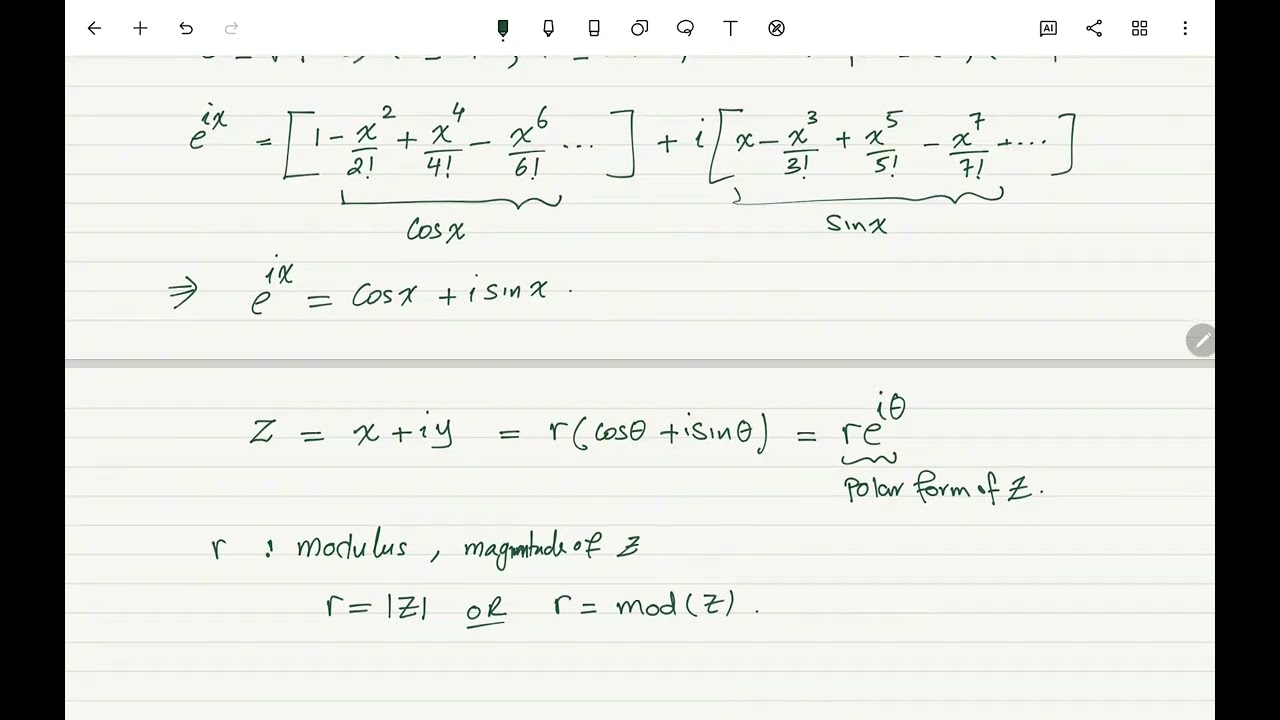 AI
e^{ix} = [1 - x^2/2! + x^4/4! - x^6/6! ...] + i[x - x^3/3! + x^5/5! - x^7/7! + ...]
cosx
sinx
⇒ e^{ix} = cosx + i sinx.
Z = x + iy = r(cosθ + isinθ) = re^{iθ}
polar form of Z.
r : modulus, magnitude of Z
r = |Z| OR r = mod(Z).